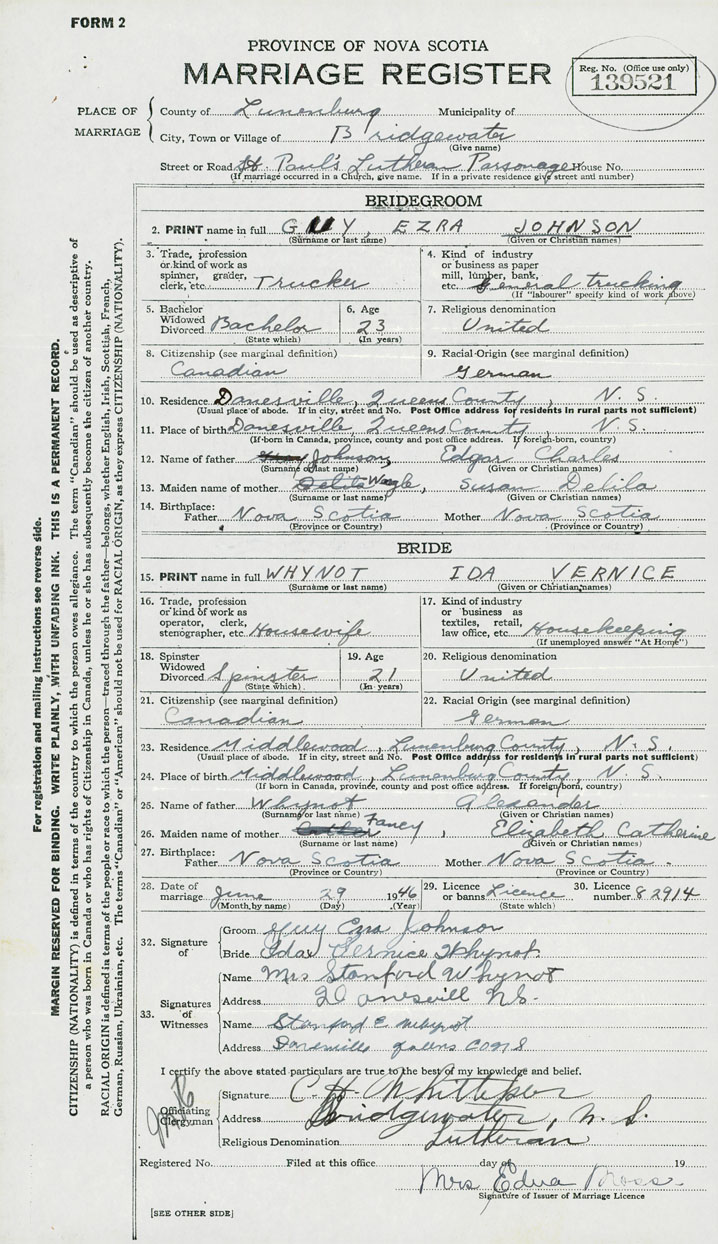 FORM 2
PROVINCE OF NOVA SCOTIA
MARRIAGE REGISTER
Reg. No. (Office use only)
139521
PLACE OF MARRIAGE
County of Lunenburg Municipality of
City, Town or Village of Bridgewater
(Give name)
Street or Road St Paul's Lutheran Parsonage House No.
(If marriage occurred in a Church, give name. If in a private residence give street and number)
BRIDEGROOM
2. PRINT name in full GUY, EZRA JOHNSON
(Surname or last name) (Given or Christian names)
3. Trade, profession or kind of work as spinner, grader, clerk, etc. Trucker
4. Kind of industry or business as paper mill, lumber, bank, etc. General trucking
(If "labourer" specify kind of work above)
5. Bachelor Widowed Divorced Bachelor
(State which)
6. Age 23
(In years)
7. Religious denomination United
8. Citizenship (see marginal definition) Canadian
9. Racial Origin (see marginal definition) German
10. Residence Danesville, Queens County, N. S.
(Usual place of abode. If in city, street and No. Post Office address for residents in rural parts not sufficient)
11. Place of birth Danesville, Queens County, N. S.
(If born in Canada, province, county and post office address. If foreign-born, country)
12. Name of father Johnson, Edgar Charles
(Surname or last name) (Given or Christian names)
13. Maiden name of mother Delila Wagle, Susan Delila
(Surname or last name) (Given or Christian names)
14. Birthplace: Father Nova Scotia Mother Nova Scotia
(Province or Country) (Province or Country)
BRIDE
15. PRINT name in full WHYNOT IDA VERNICE
(Surname or last name) (Given or Christian names)
16. Trade, profession or kind of work as operator, clerk, stenographer, etc. Housewife
17. Kind of industry or business as textiles, retail, law office, etc. Housekeeping
(If unemployed answer "At Home")
18. Spinster Widowed Divorced Spinster
(State which)
19. Age 21
(In years)
20. Religious denomination United
21. Citizenship (see marginal definition) Canadian
22. Racial Origin (see marginal definition) German
23. Residence Middlewood, Lunenburg County, N. S.
(Usual place of abode. If in city, street and No. Post Office address for residents in rural parts not sufficient)
24. Place of birth Middlewood, Lunenburg County, N. S.
(If born in Canada, province, county and post office address. If foreign-born, country)
25. Name of father Whynot Alexander
(Surname or last name) (Given or Christian names)
26. Maiden name of mother Fancy, Elizabeth Catherine
(Surname or last name) (Given or Christian names)
27. Birthplace: Father Nova Scotia Mother Nova Scotia.
(Province or Country) (Province or Country)
28. Date of marriage June 29 1946
(Month by name) (Day) (Year)
29. Licence or banns Licence
(State which)
30. Licence number 82914
32. Signature of
Groom Guy Ezra Johnson
Bride Ida Vernice Whynot
33. Signatures of Witnesses
Name Mrs Stanford Whynot
Address Danesvill NS.
Name Stanford C Whynot
Address
I certify the above stated particulars are true to the best of my knowledge and belief.
Officiating Clergyman
Signature C. H. Whitteker
Address Bridgewater, N. S.
Religious Denomination Lutheran
Registered No. Filed at this office day of 19
Mrs Edna Bross
Signature of Issuer of Marriage Licence
[SEE OTHER SIDE]
For registration and mailing instructions see reverse side.
MARGIN RESERVED FOR BINDING. WRITE PLAINLY, WITH UNFADING INK. THIS IS A PERMANENT RECORD.
CITIZENSHIP (NATIONALITY) is defined in terms of the country to which the person owes allegiance. The term "Canadian" should be used as descriptive of
a person who was born in Canada or who has rights of Citizenship in Canada, unless he or she has subsequently become the citizen of another country.
RACIAL ORIGIN is defined in terms of the people or race to which the person—traced through the father—belongs, whether English, Irish, Scottish, French,
German, Russian, Ukrainian, etc. The terms "Canadian" or "American" should not be used for RACIAL ORIGIN, as they express CITIZENSHIP (NATIONALITY).